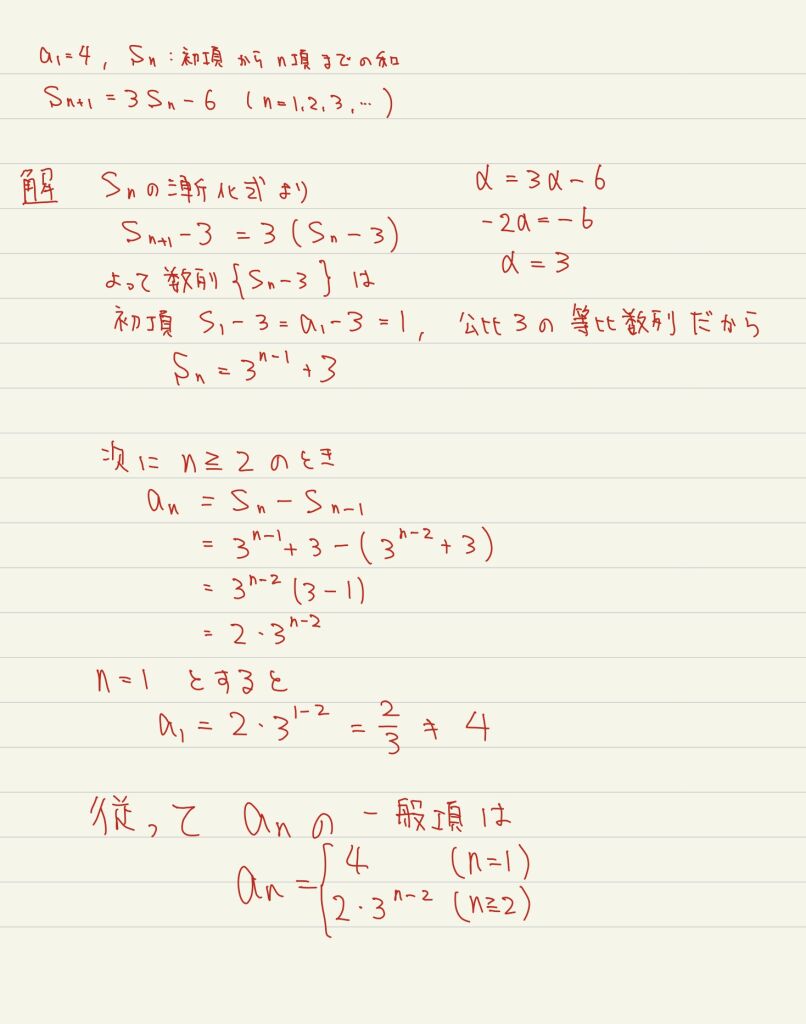 a₁=4, Sₙ:初項からn項までの和
Sₙ₊₁ = 3Sₙ-6 (n=1,2,3,…)
解 Sₙの漸化式より
Sₙ₊₁-3 = 3(Sₙ-3)
よって数列{Sₙ-3}は
初項 S₁-3=a₁-3=1, 公比3の等比数列だから
Sₙ = 3ⁿ⁻¹+3
α=3α-6
-2α=-6
α=3
次に n≧2 のとき
aₙ = Sₙ-Sₙ₋₁
= 3ⁿ⁻¹+3-(3ⁿ⁻²+3)
= 3ⁿ⁻²(3-1)
= 2・3ⁿ⁻²
n=1 とすると
a₁=2・3¹⁻² = 2/3 ≠ 4
従って aₙの一般項は
aₙ={4 (n=1)
2・3ⁿ⁻² (n≧2)